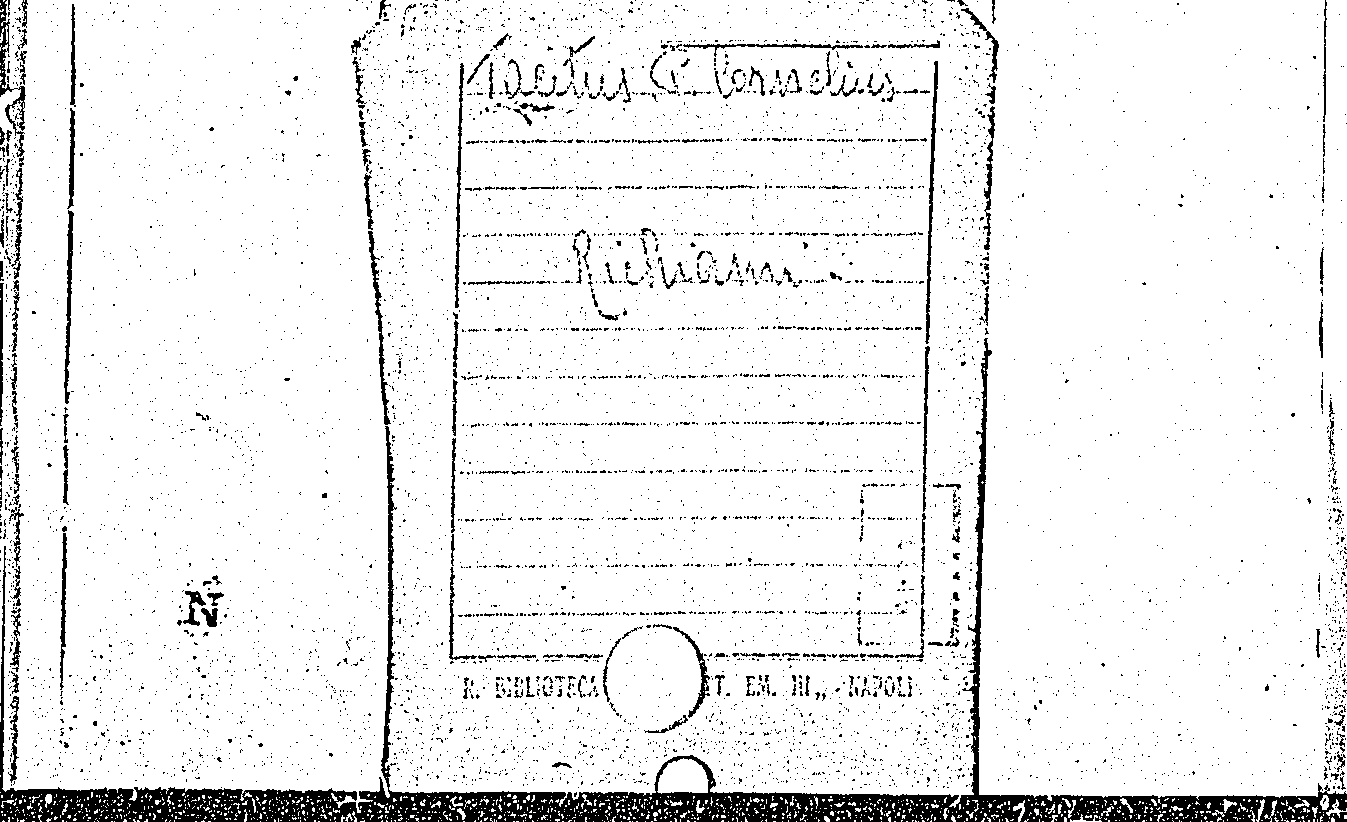 Tacitus C. Cornelius
Richiami.
N
R. BIBLIOTECA T. EM. III„ - NAPOLI